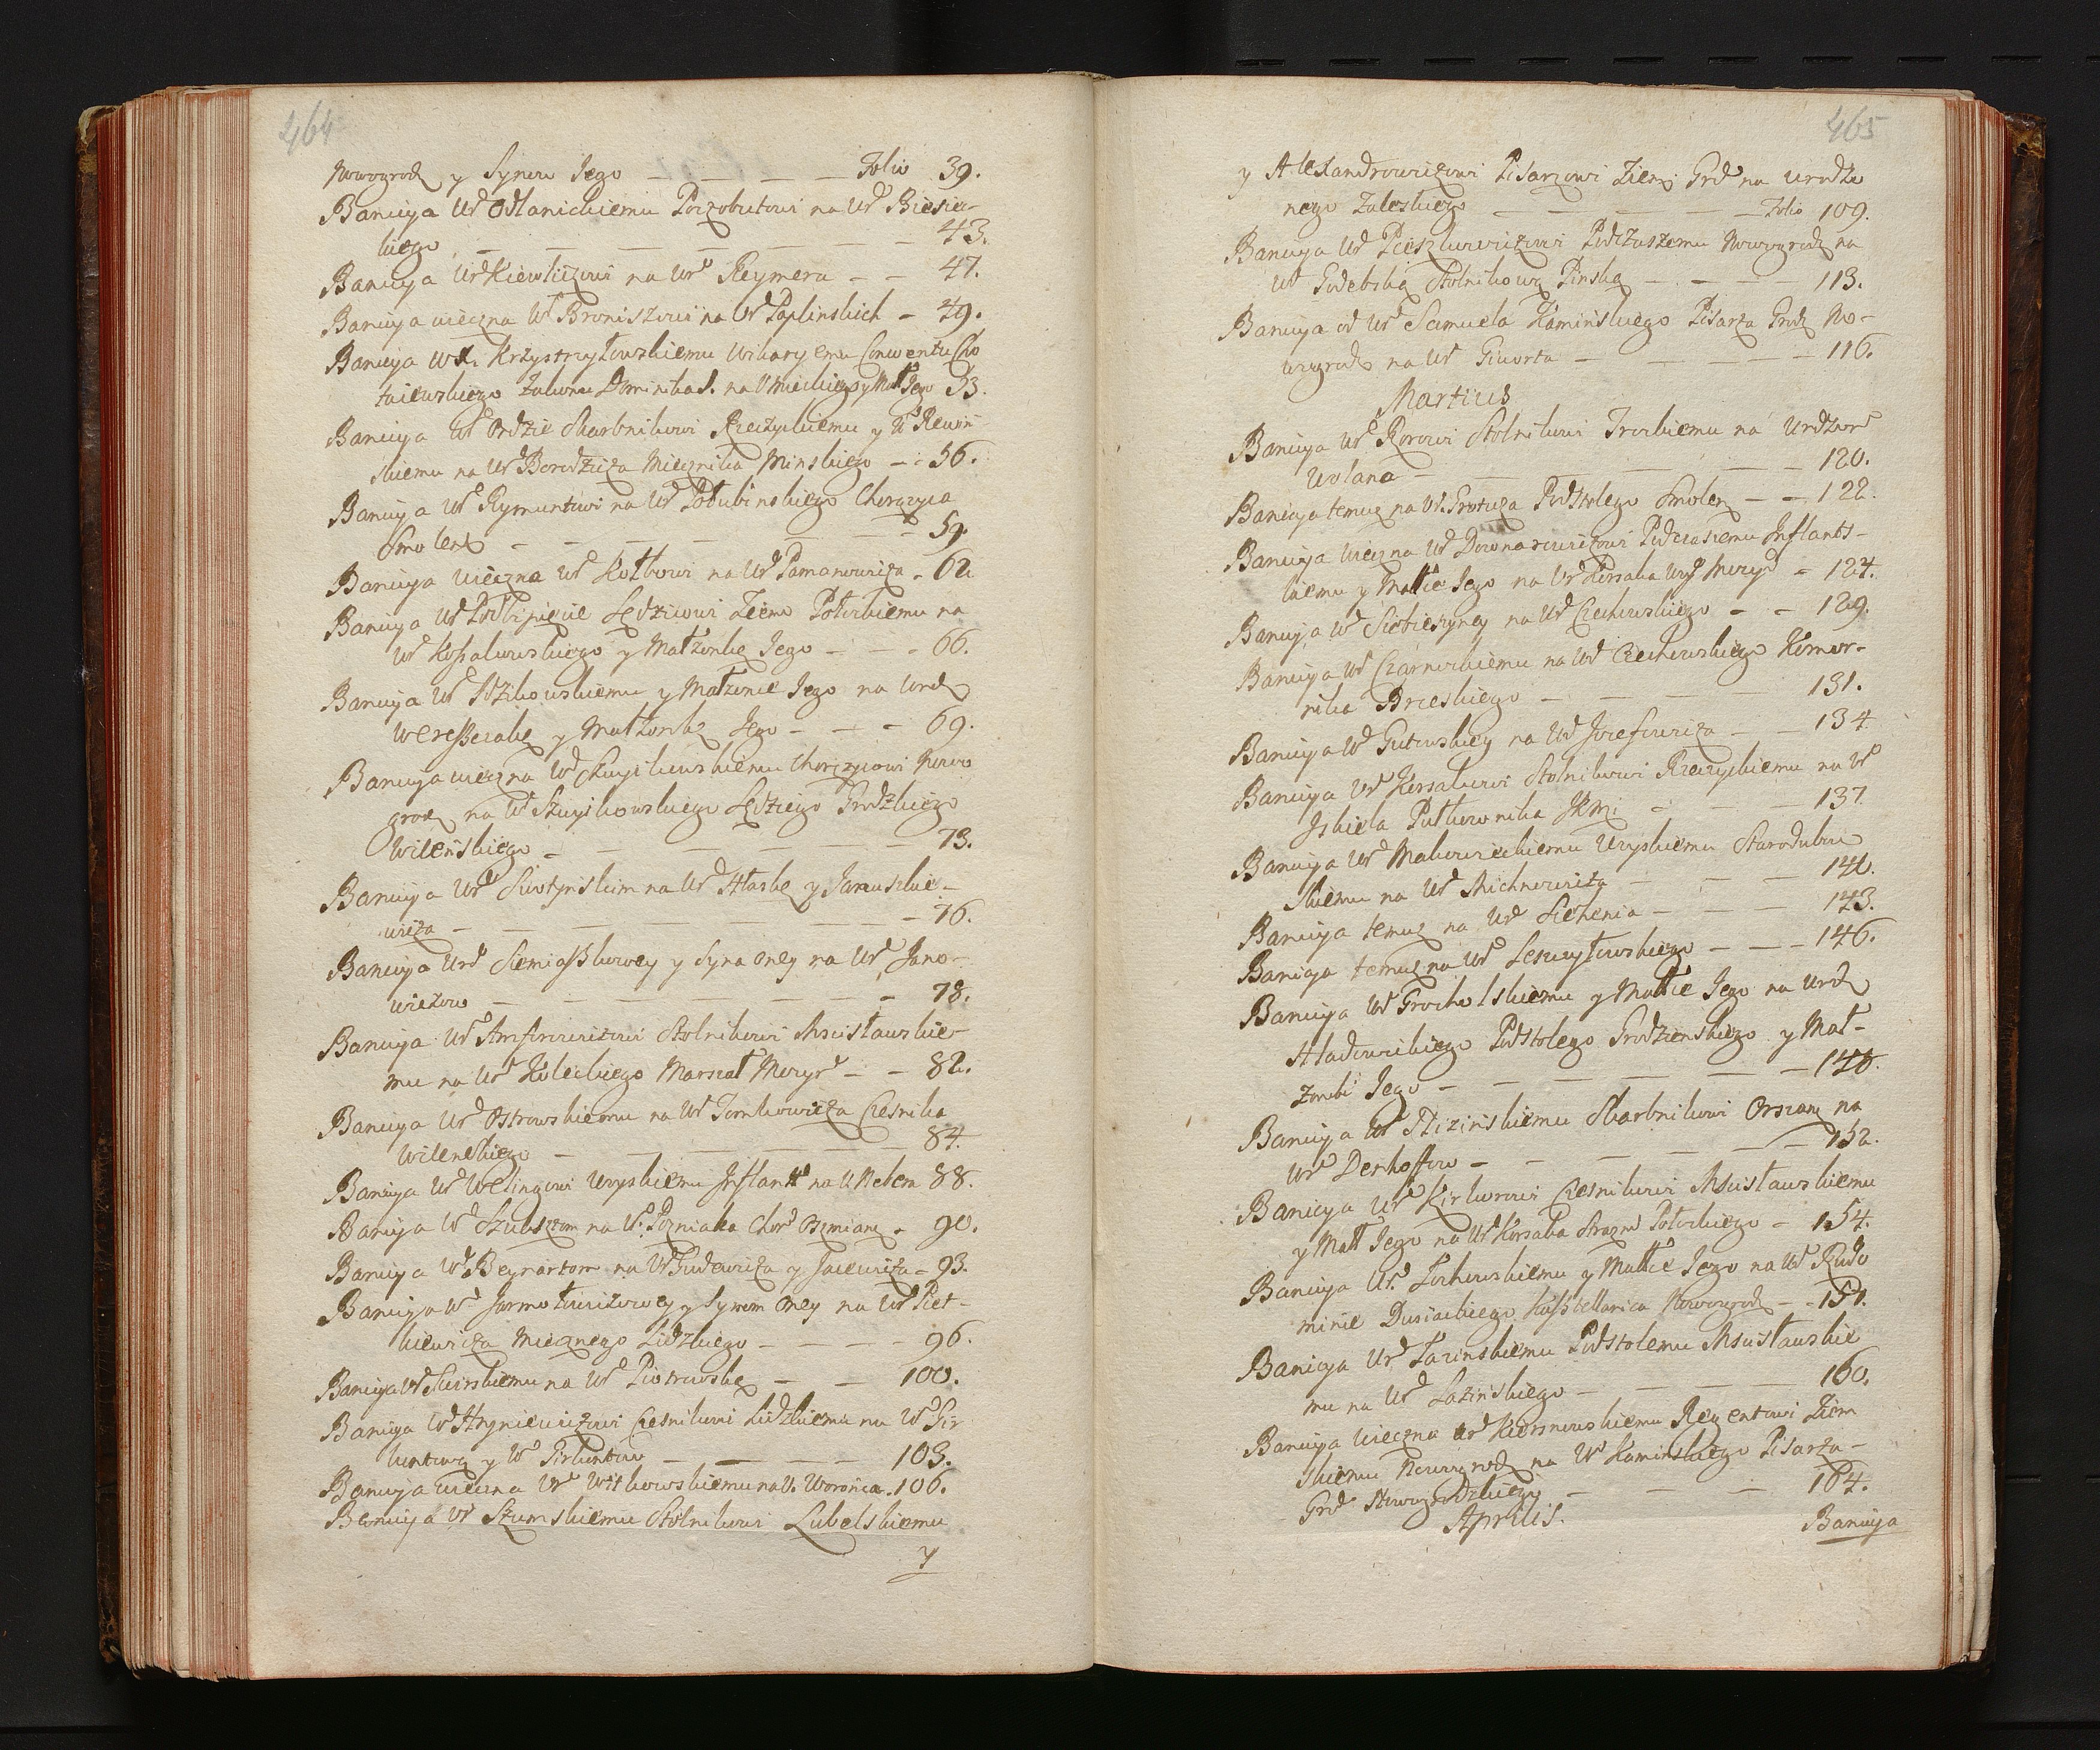 464
Nowogrod y Synow Jego — — — — Folio 39.
Banicya Ur Odlanickiemu Poczobutowi na Ur Biesie-
kiego — — — — — — 43.
Banicya Ur Kiewliczowi na Ur Reymera — — 47.
Banicya wieczna Ur Broniszowi na Ur Paplinskich — 49.
Banicya WX. Krzysztyłowskiemu Wikaryemu Conwentu Cho
taiewskiego Zakonu Dominika S. na Umieckiego y Mał Jego 53.
Banicya Ur Ordzie Skarbnikowi Rzeczyckiemu y U Rewin
skiemu na Ur Borodzicza Miecznika Minskiego — 56.
Banicya Ur Rymuntowi na Ur Połubinskiego Chorązyca
Smolen — — — — — — 59.
Banicya wieczna Ur Kołbowi na Ur Pamanowicza — 62
Banicya Ur Podbipięcie Sędziowi Ziem Połockiemu na
Ur Kossakowskiego y Małzonkę Jego — — — 66.
Banicya Ur Idzikowskiemu y Małzonce Jego na Urod
Weresszczakę y Małzonkę Jego — — — 69.
Banicya wieczna Ur Skuyskowskiemu Chorązycowi Nowo
grod na Ur Szuyskowskiego Sędziego Grodzkiego
Wileńskiego — — — — — 73.
Banicya Ur Siwotyńskim na Ur Hłaskę y Januszkie-
wicza — — — — — 76.
Banicya Urd Siemiąszkowey y Syna Oney na Ur Jano-
wiczow — — — — — — 78.
Banicya Ur Anforowiczowi Stolnikowi Mscisławskie
mu na Ur Koleckiego Marszał Mozyr — — 82.
Banicya Ur Ostrowskiemu na Ur Tomkowicza Czesnika
Wilenskiego — — — — — — 84.
Banicya Ur Welingowi Woyskiemu Inflantt na U Rebem 88.
Banicya Ur Szuksztom na U. Pozniaka Chor Oszmian — 90.
Banicya Ur Beynartom na Ur Gudewicza y Jacewicza — 93.
Banicya Ur Jarmołowiczowey y Synom Oney na Ur Piet-
kiewicza Miecznego Lidzkiego — — — — 96.
Banicya Ur Swirskiemu na Ur Piotrowskę — — 100.
Banicya Ur Hryniewiczowi Czesnikowi Lidzkiemu na Ur Gir
kontową y Ur Girkontow — — — — 103.
Banicya wieczna Ur Witkowskiemu na U. Woronica. 106.
Banicya Ur Szumskiemu Stolnikowi Lubelskiemu
y
465
y Alexandrowiczowi Pisarzowi Ziem Grd na Urodzo
nego Zaleskiego — — — — — Folio 109.
Banicya Ur Pieszkowiczowi Podczaszemu Nowogrod na
Ur Godebską Stolnikową Pinską — — — — 113.
Banicya od Ur Samuela Kaminskiego Pisarza Grod No-
wogrod na Ur Giworta — — — — 116.
Martius
Banicya Ur Rorowi Stolnikowi Trockiemu na Urdzone
Wolana — — — — — 120.
Banicya temuz na Ur. Protuza Podstolego Smolen — — 122.
Banicya wieczna Ur Downarowiczowi Podczaszemu Inflants-
kiemu y Małce Jego na Ur Korsaka Woys Mozyr — 124.
Banicya Ur Siebieszyney na Ur Czechowskiego — — 129.
Banicya Ur Czarnockiemu na Ur Czechowskiego Komor-
nika Brzeskiego — — — 131.
Banicya Ur Gutowskiey na Ur Jozefowicza — — 134
Banicya Ur Korsakowi Stolnikowi Rzeczyckiemu na Ur
Jskiela Pułkownika JKMci — — — 137.
Banicya Ur Makowieckiemu Woyskiemu Starodubow
skiemu na Ur Michnowicza — — — 140.
Banicya temuz na Ur Siehenia — — — 143.
Banicya temuz na Ur Leswyłowskiego — — — 146.
Banicya Ur Grocholskiemu y Małce Jego na Urod
Hładowickiego Podstolego Grodzienskiego y Mał-
zonki Jego — — — — — — 148.
Banicya Ur Rizinskiemu Skarbnikowi Orszan na
Ur Denhoffow — — — — — — 152.
Banicya Ur Kirkorowi Czesnikowi Mscisławskiemu
y Małl Jego na Ur Korsaka Strazn Połockiego — 154.
Banicya Ur. Zochowskiemu y Małce Jego na Ur Rudo
minie Dusiackiego Kasztellanica Nowogrod — — 157.
Banicya Ur Łazinskiemu Podstolemu Mscisławskie
mu na Ur Lazińskiego — — — — 160.
Banicya wieczna Ur Kiersnowskiemu Regentowi Ziem
skiemu Nowogrod na Ur Kaminskiego Pisarza
Grd Nowogrodzkiego — — — 164.
Aprilis.
Banicya